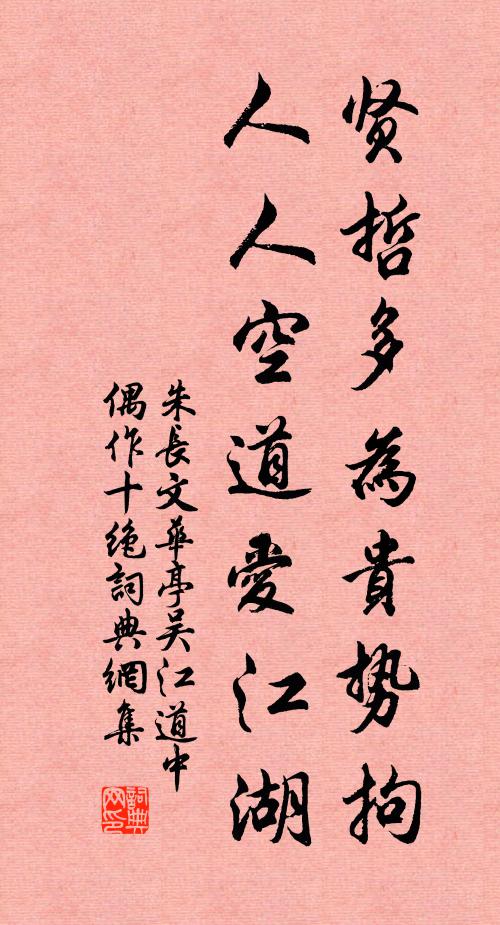 贤哲多為貴勢拘
人人空道愛江湖
朱長文華亭吴江道中
偶作十絶詞典網集
詞典
网印